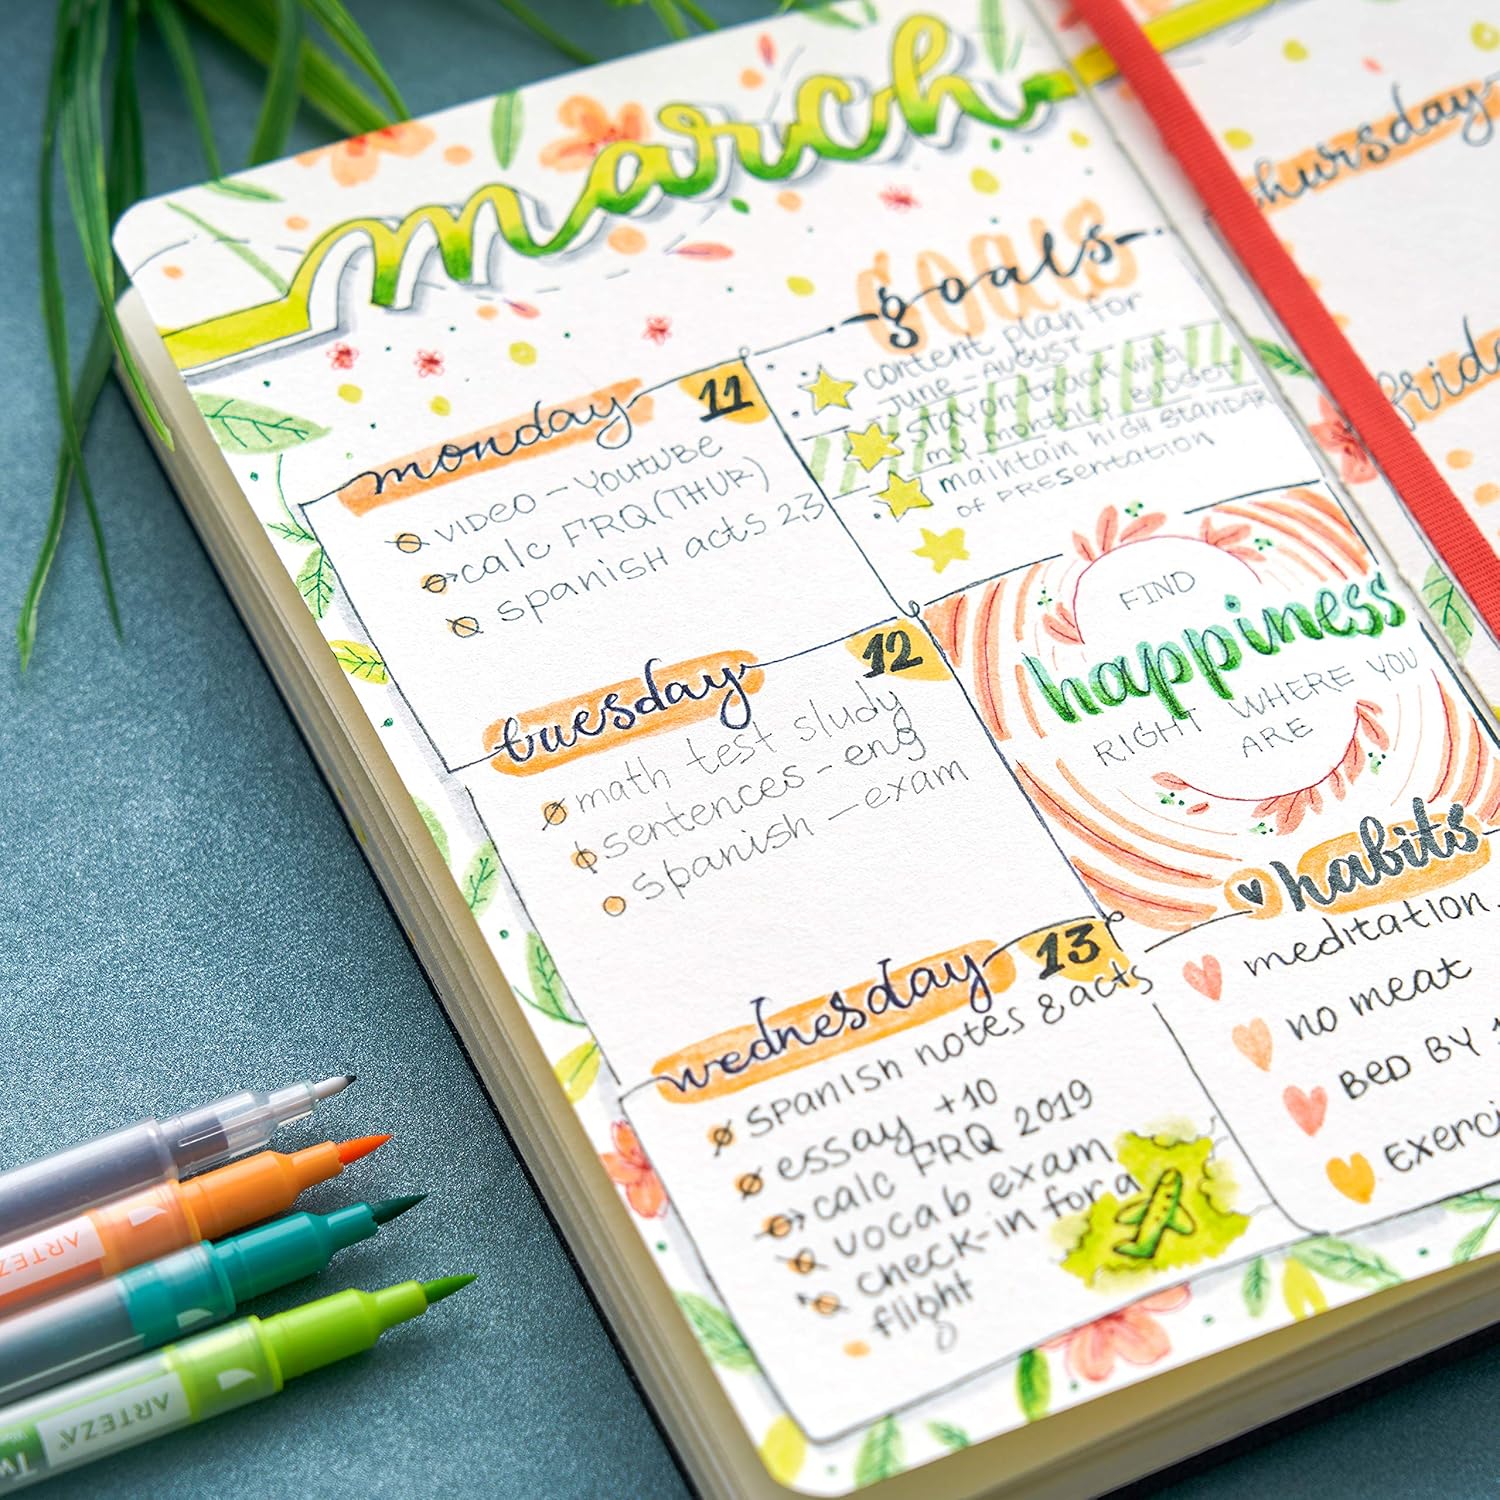 march
monday 11
VIDEO - YouTUBE
calc FRQ (THUR)
spanish acts 2,3
tuesday 12
math test sludy
sentences - eng
spanish - exam
wednesday 13
spanish notes & acts
essay +10
calc FRQ 2019
vocab exam
check-in for a
flight
goals
goals
content plan for
June - AUGUST
stay on track with
my monthly BUDGET
maintain high STANDAR
of PRESENTATION
FIND
happiness
RIGHT WHERE YOU
ARE
habits
meditation
no meat
BED BY
EXERCI
thursday
frida
ARTEZA
ARTEZA
Tw